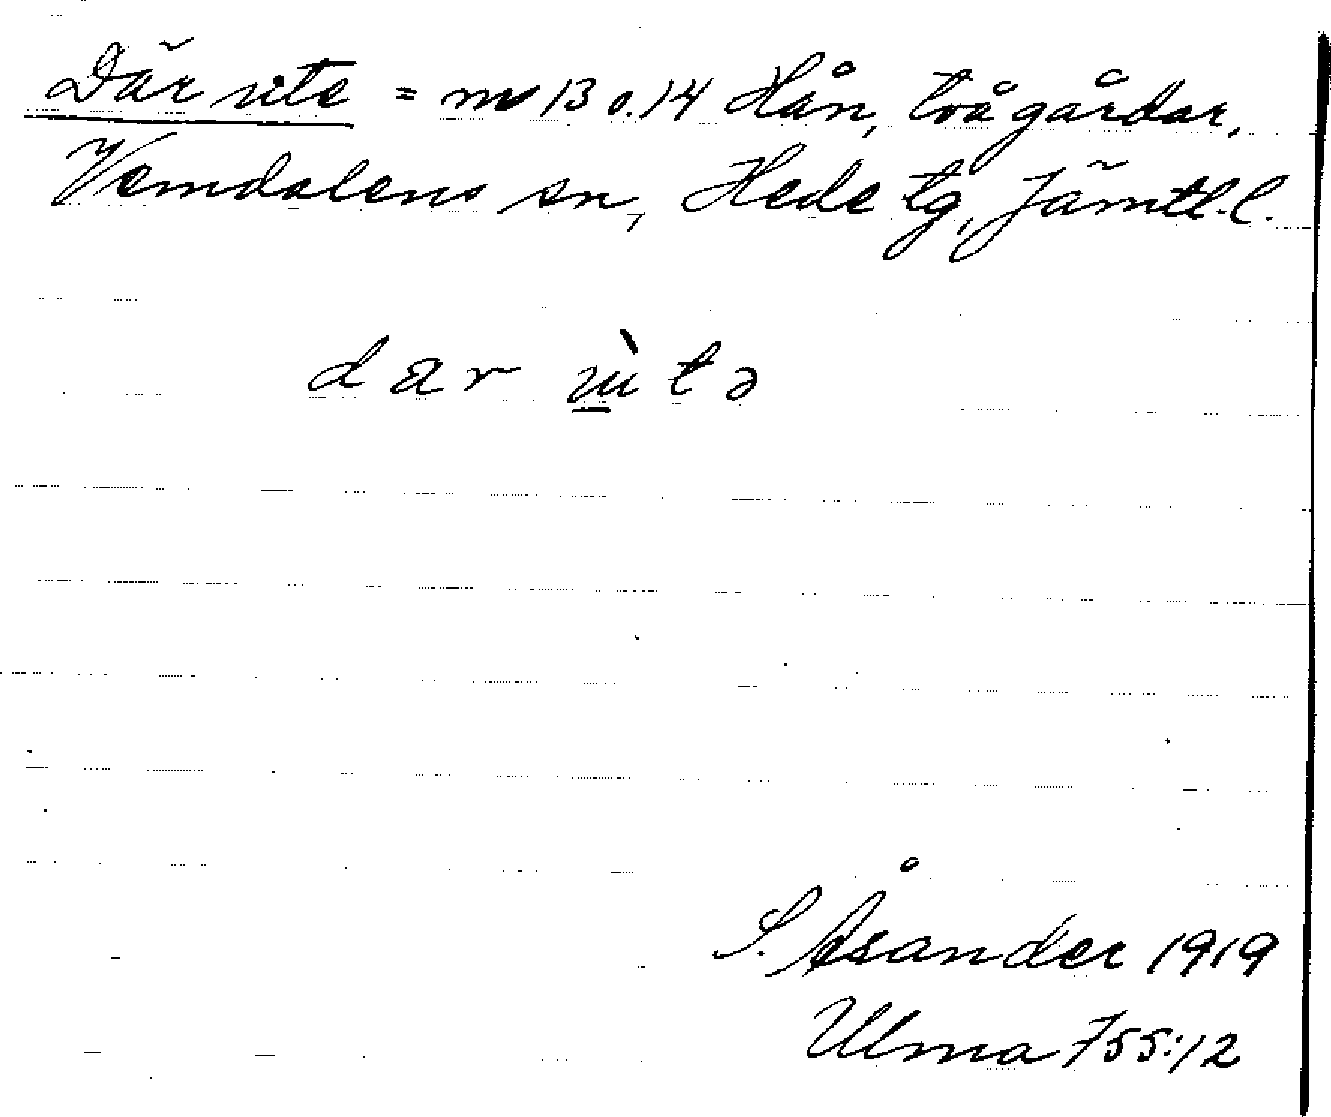 Där ute = nr 13 o. 14 Hån, två gårdar,
Vemdalens sn, Hede tg, Jämtl. l.
dar ùtə
S. Åsander 1919
Ulma 755:12